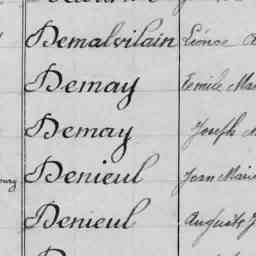 Demalvilain Léonce
Demay Emile Mar
Demay Joseph M
Denieul Jean Marie
Denieul Auguste J